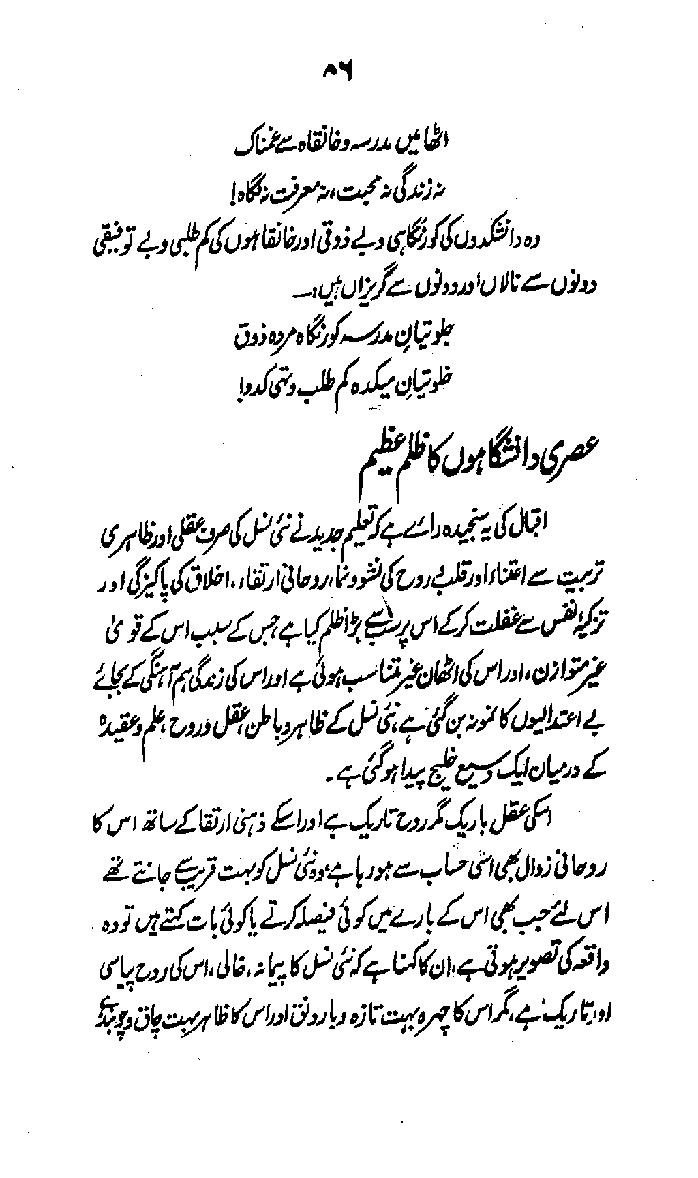 ۸۶
اٹھا میں مدرسہ و خانقاہ سے غمناک
نہ زندگی نہ محبت، نہ معرفت نہ نگاہ!
وہ دانشکدوں کی کور نگاہی و بے ذوقی اور خانقاہوں کی کم طلبی و بے توفیقی
دونوں سے نالاں اور دونوں سے گریزاں ہیں:۔
جلوتیانِ مدرسہ کور نگاہ مردہ ذوق
خلوتیانِ میکدہ کم طلب و تہی کدو!
عصری دانشگاہوں کا ظلم عظیم
اقبال کی یہ سنجیدہ رائے ہے کہ تعلیم جدید نے نئی نسل کی صرف عقلی اور ظاہری
تربیت سے اعتناء اور قلب و روح کی نشوونما، روحانی ارتقاء، اخلاق کی پاکیزگی اور
تزکیۂ نفس سے غفلت کر کے اس پر سب سے بڑا ظلم کیا ہے جس کے سبب اس کے قویٰ
غیر متوازن، اور اس کی اٹھان غیر متناسب ہوئی ہے اور اس کی زندگی ہم آہنگی کے بجائے
بے اعتدالیوں کا نمونہ بن گئی ہے، نئی نسل کے ظاہر و باطن، عقل و روح، علم و عقیدہ
کے درمیان ایک وسیع خلیج پیدا ہو گئی ہے۔
اسکی عقل باریک مگر روح تاریک ہے اور اسکے ذہنی ارتقا کے ساتھ اس کا
روحانی زوال بھی اسی حساب سے ہو رہا ہے، وہ نئی نسل کو بہت قریب سے جانتے تھے
اس لئے جب بھی اس کے بارے میں کوئی فیصلہ کرتے یا کوئی بات کہتے ہیں تو وہ
واقعہ کی تصویر ہوتی ہے، ان کا کہنا ہے کہ نئی نسل کا پیمانہ، خالی، اس کی روح پیاسی
اور تاریک ہے، مگر اس کا چہرہ بہت تازہ و بارونق اور اس کا ظاہر بہت چاق و چوبند ہے